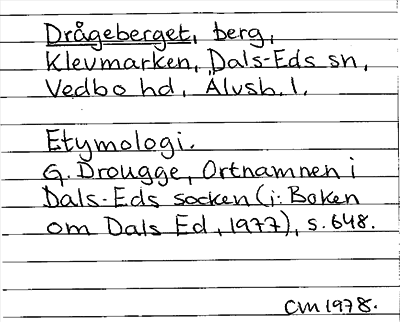 Drågeberget, berg,
Klevmarken, Dals-Eds sn,
Vedbo hd, Älvsb. l.
Etymologi.
G. Drougge, Ortnamnen i
Dals-Eds socken (i: Boken
om Dals Ed, 1977), s. 648.
CM 1978.